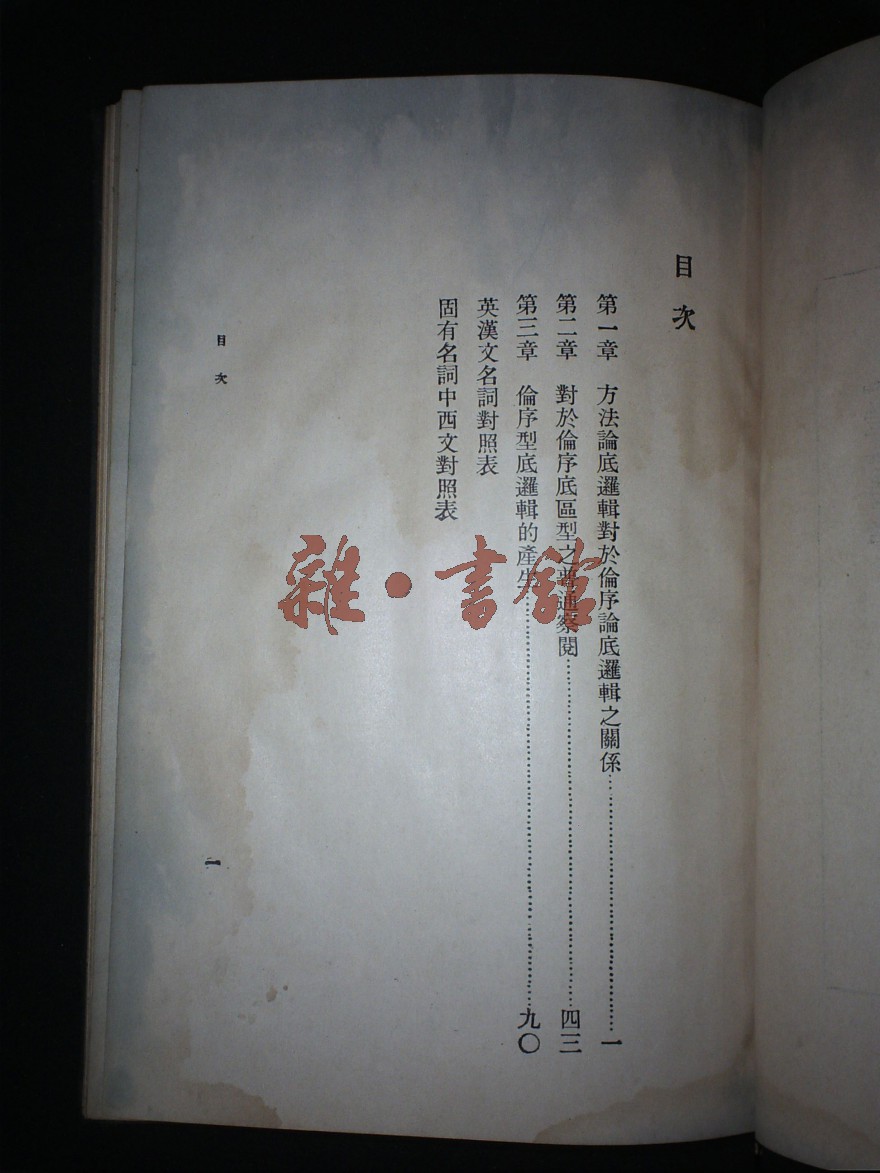 目次
第一章　方法論底邏輯對於倫序論底邏輯之關係……一
第二章　對於倫序底區型之普通察閱……四三
第三章　倫序型底邏輯的產生……九〇
英漢文名詞對照表
固有名詞中西文對照表
目次
一
雜·書館